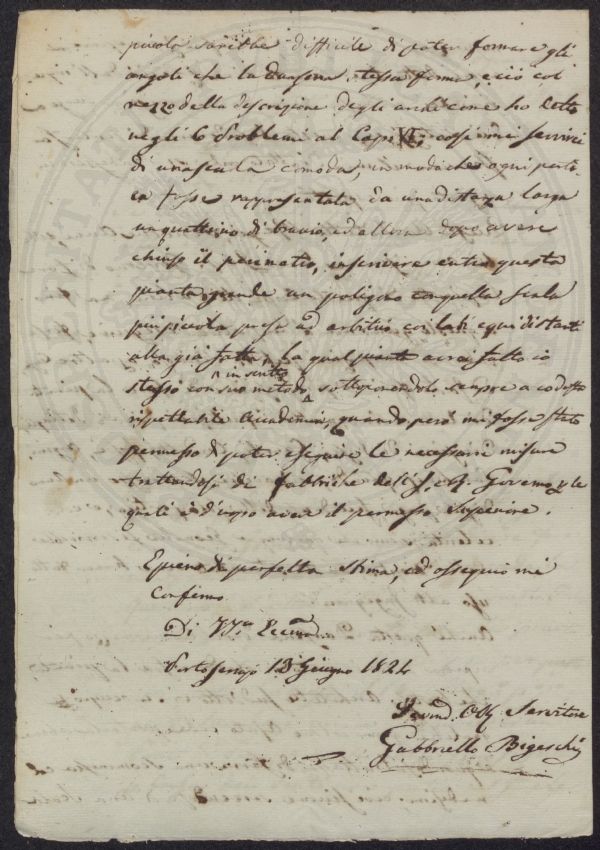 piccola sarebbe difficile di poter formare gli
angoli che la Darsena stessa forma, e ciò col
mezzo della descrizione degli archi come ho letto
negli 6 Problemi al Cap: VI, così mi servirei
di una scala comoda, in modo che ogni perti-
ca fosse rappresentata da una distanza larga
un quattrino di travio, ed allora dopo avere
chiuso il perimetro, inscrivere entro questa
pianta grande un poligono con quella scala
più piccola presa ad arbitrio, coi lati equidistanti
alla già fatta, la qual avrei fatto io
stesso con suo metodo in scritto, sottoponendolo sempre a codesta
rispettabile Accademia, quando però mi fosse stato
permesso di poter eseguire le necessarie misure
trattandosi di fabbriche dell' Governo, per le
quali è d'uopo aver il permesso Superiore.
E pieno di perfetta stima, ed ossequio mi
confermo
Di
Porto 13 Giugno 1824
Servitore
Gabbriello Bigeschi